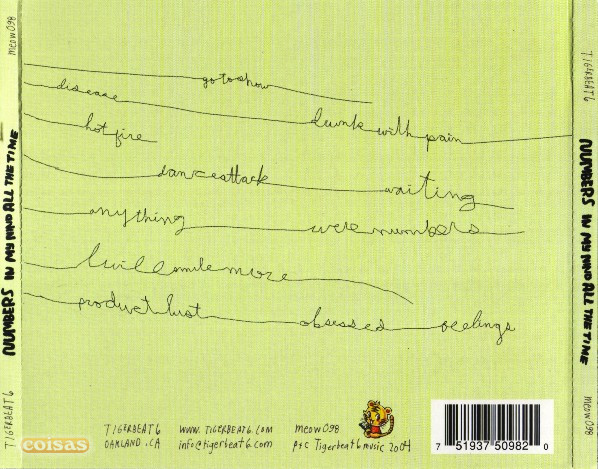 meow 098
NUMBERS IN MY MIND ALL THE TIME
TIGERBEAT6
go to show
disease
drunk with pain
hot fire
dance attack
waiting
anything
we're numbers
I will smile more
product lust
obsessed
feelings
TIGERBEAT6
OAKLAND.CA
WWW.TIGERBEAT6.COM
info@tigerbeat6.com
meow 098
p+c Tigerbeat6 music 2004
7 51937 50982 0
coisas
TIGERBEAT6
NUMBERS IN MY MIND ALL THE TIME
meow 098